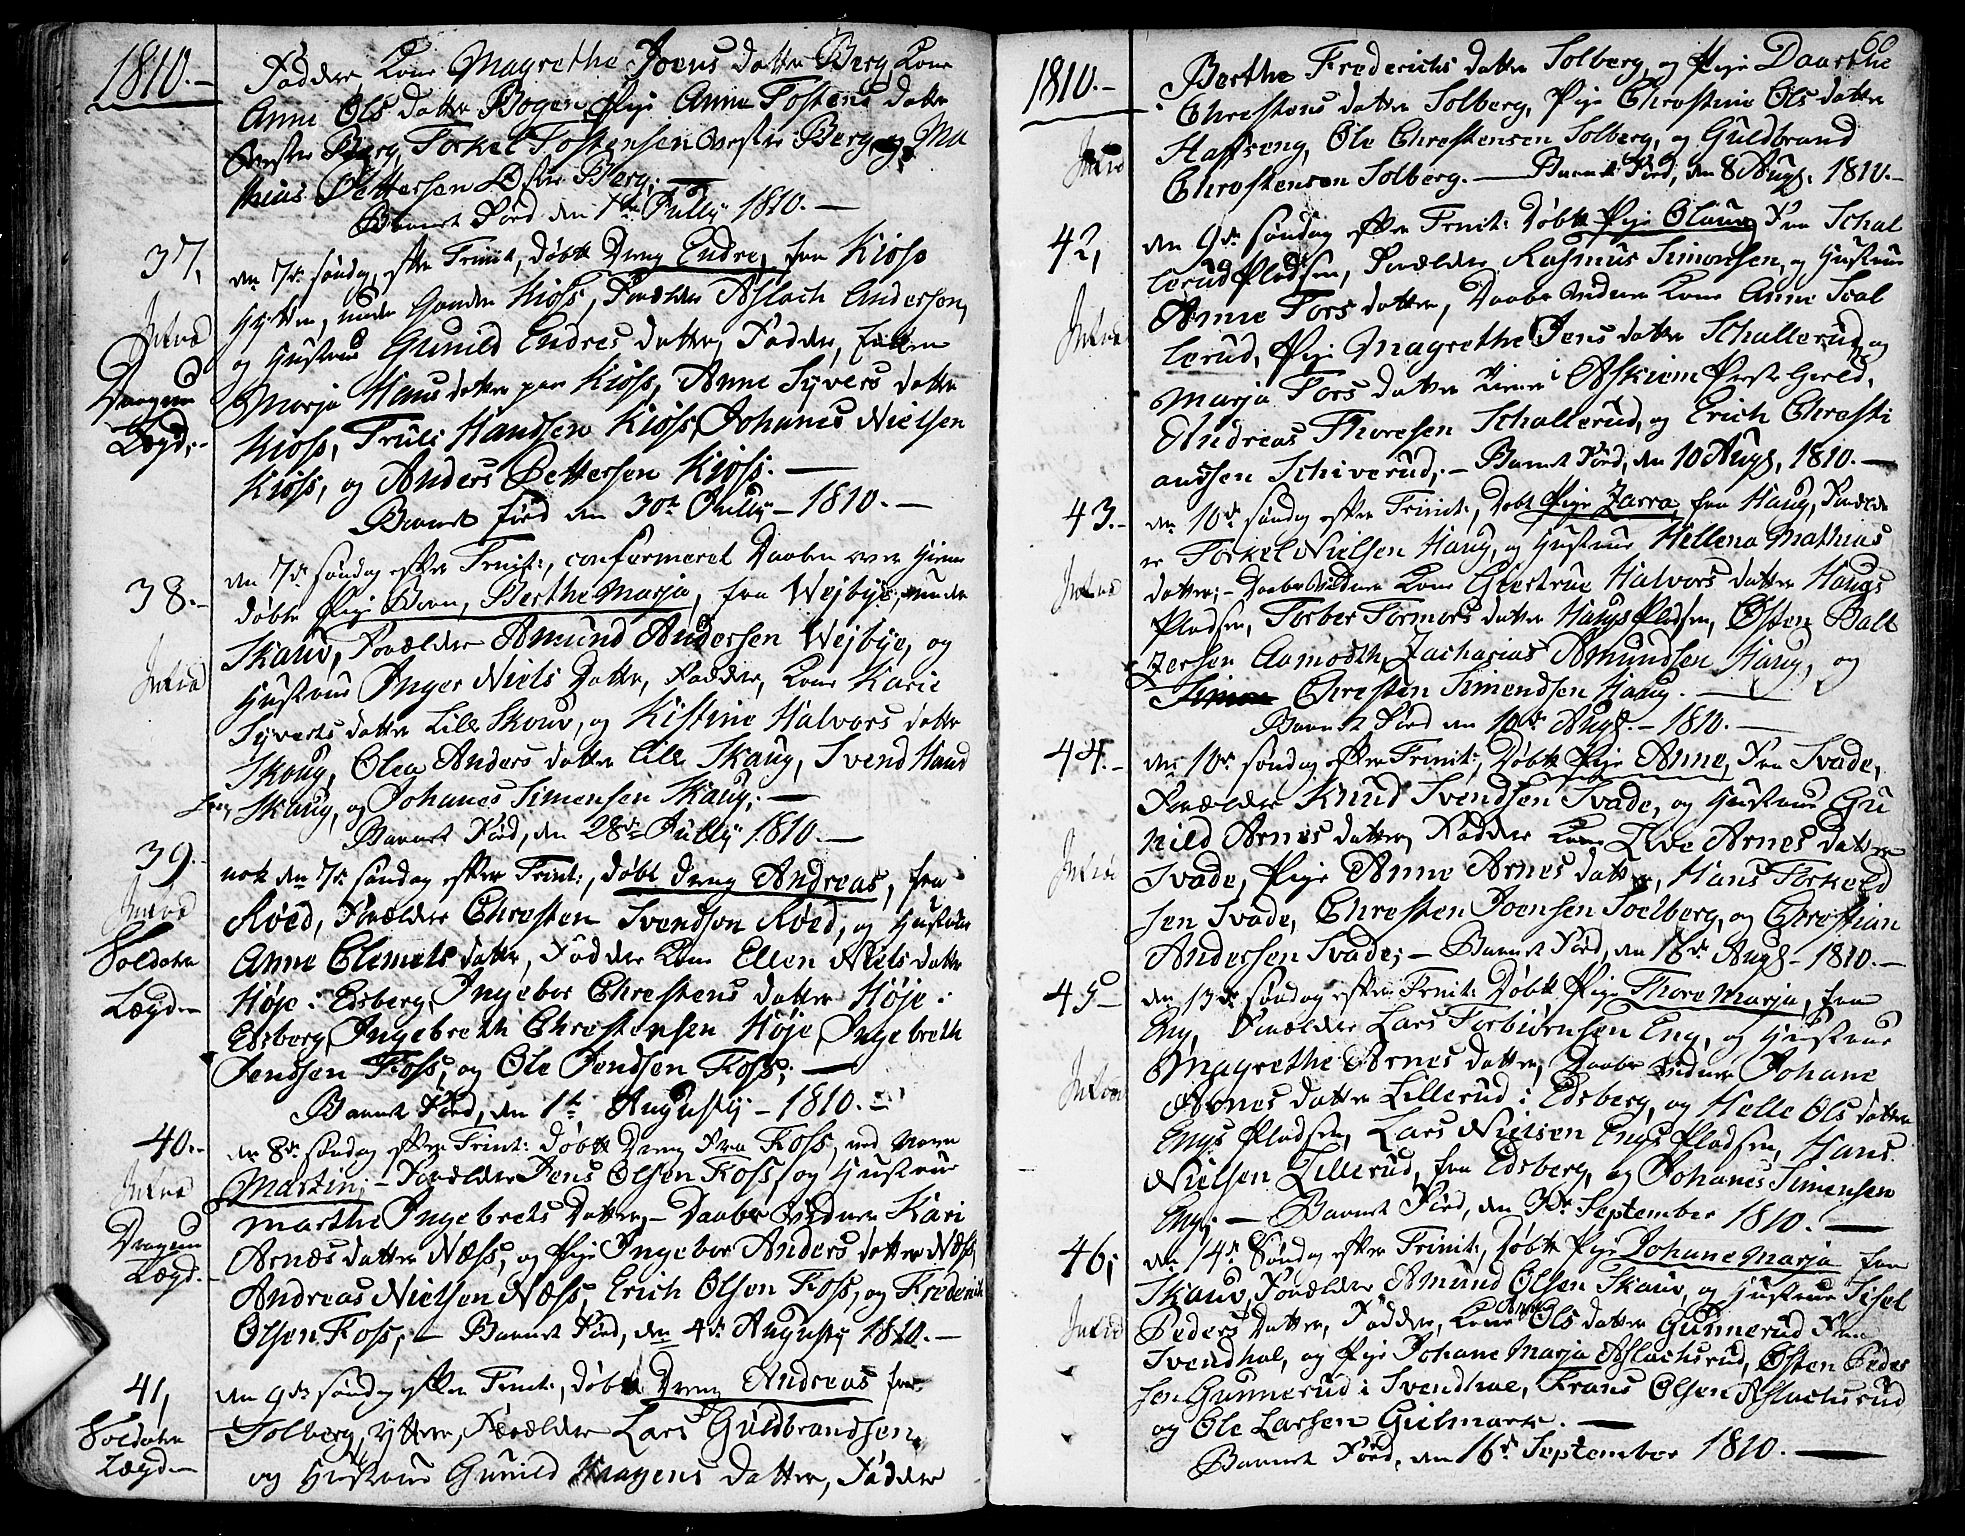 1810.-
Faddere Kone Magrethe Joens datter Berg, Kone
Anne Ols datter Bogen, Pige Anne Tostens datter
Berg, Torkel Tostensen Berg, og Ma
thias Pettersen Østre Berg; —
Barnet Förd den 1te Jully 1810. —
37,
Intrad
Dragun
Lægd,-
den 7de söndag efter Trinit, döbte Dreng Endre, fra Kiöss
Hytten, under Gaarden Kiöss, Forældre Aslach Anderssen,
og Hustrue Gunild Endres datter, Faddere,
Marja Hans datter paa Kiöss, Anne Syvers datter
Kiöss, Truls Handsen Kiöss, Johanes Nielsen
Kiöss, og Anders Pettersen Kiöss. —
Barnet förd den 30te Jully - 1810. —
38.-
Intrad
den 7de söndag efter Trinit:, confermeret Daaben over hieme
döbte Pige Barn, Berthe Marja, fra Wejbye, under
Skauv, Forældre Amund Anderssen Wejbye, og
Hustrue Inger Niels Datter, Faddere, Kone Karie
Syverts datter Lille Skouv, og Kistine Halvors datter
Skoug, Olea Anders datter Lille Skaug, Svend Hand
sen Skaug, og Johanes Simensen Skaug; —
Barnet Förd, den 28de Jully 1810. —
39.-
Intrad
Soldater
Lægd-
nok den 7de söndag efter Trint:, döbt dreng Andreas, fra
Röed, Forældre Chresten Svendsen Röed, og Hustrue
Anne Clemets datter, Faddere Kone Ellen Niels datter
Höje i Edsberg, Ingebor Chrestens datter Höje i
Edsberg, Ingebreth Chrestensen Höje, Ingebreth
Jendsen Foss, og Ole Jendsen Foss; —
Barnet Förd, den 1te Augusty - 1810. -
40.-
Intrad
Dragun
Lægd.-
den 8de söndag efter Trint: döbte Dreng Fra Foss, ved Navn
Martin; - Forældre Jens Olsen Foss, og Hustrue
Marthe Ingebrets Datter, - Daabs Vidner Kari
Arnes datter Næss, og Pige Ingebor Anders datter Næss,
Andreas Nielsen Næss, Erich Olsen Foss, og Frederik
Olsen Foss; - Barnet Förd, den 4de Augusty 1810. —
41,
Soldater
Lægd-
den 9de söndag efter Trint:, döbte Dreng Andreas fra
Solberg, Yttre, Forældre Lars Guldbrandsen,
og Hustrue Gunild Haagens Datter, Faddere
60
1810.-
Intrad
Berthe Frederichs datter Solberg, og Pige Daarthe
Chrestens datter Solberg, Pige Chrestine Ols datter
Hafseng, Ole Chrestensen Solberg, og Guldbrand
Chrestensen Solberg. — Barnet Förd, den 8 Augs. 1810.-
42,
Intrad
den 9de söndag efter Trinit: Döbte Pige Olaug Fra Schal
lerud Pladsen, Forældre Rasmus Simonsen, og Hustrue
Anne Tors datter, Daabs Vidner Kone Anne Scal
lerud, Pige Magrethe Jens datter Schallerud, og
Marja Tors datter tiener i Askiem Preste Gield,
Andreas Thoresen Schallerud, og Erich Chresti
anssen Schiverud; - Barnet Förd, den 10 Augs. 1810. —
43.-
Intrad
den 10de söndag efter Trinit:, Döbt Pige Zarra, fra Haug, Foreld
re Torkel Nielsen Haug, og Hustrue Hellena Mathias
datter; - Daabs Vidner Kone Giertrue Halvors datter Haugs
Pladsen, Torber Tormors datter Haugs Pladsen, Østen Balt
zersen Aamodth, Zacharias Amundsen Haug, og
Chresten Simendsen Haug. —
Barnet Förd den 10de Augs. - 1810. —
44.-
Intrad
den 10de söndag efter Trinit:, Döbte Pige Anne, Fra Svade,
Forældre Knud Svendsen Svade, og Hustrue Gu
nild Arnes datter, Faddere Kone Live Arnes datter
Svade, Pige Anne Arnes datter, Hans Torkeld
sen Svade, Chresten Joensen Soelberg, og Christian
Anderssen Svade; - Barnet Förd, den 18de Augs - 1810. —
45-
Intrad
den 13de söndag efter Trinit: Döbte Pige Thore Marja, fra
Eng, Forældre Lars Torbiörnsen Eng, og Hustrue
Magrethe Arnes datter, Daabs Vidner Johane
Arnes datter Lillerud i Edsberg, og Helle Ols datter
Engs Pladsen, Lars Nielsen Engs Pladsen, Hans
Nielsen Lillerud, fra Edsberg, og Johanes Simensen
Eng; — Barnet Förd, den 9de September 1810. —
46,
Intrad
den 14de Söndag efter Trinit:, Döbte Pige Johane Marja fra
Skauv, Forældre Amund Olsen Skauv, og Hustrue Sisel
Peders Datter, Faddere, Kone Anne Ols datter Gunnerud Fra
Svendhal, og Pige Johane Marja Aslachsrud, Østen Peder
sen Gunnerud i Svendhal, Frans Olsen Aslachsrud
og Ole Larsen Gielmark. —
Barnet Förd, den 16de September 1810. —